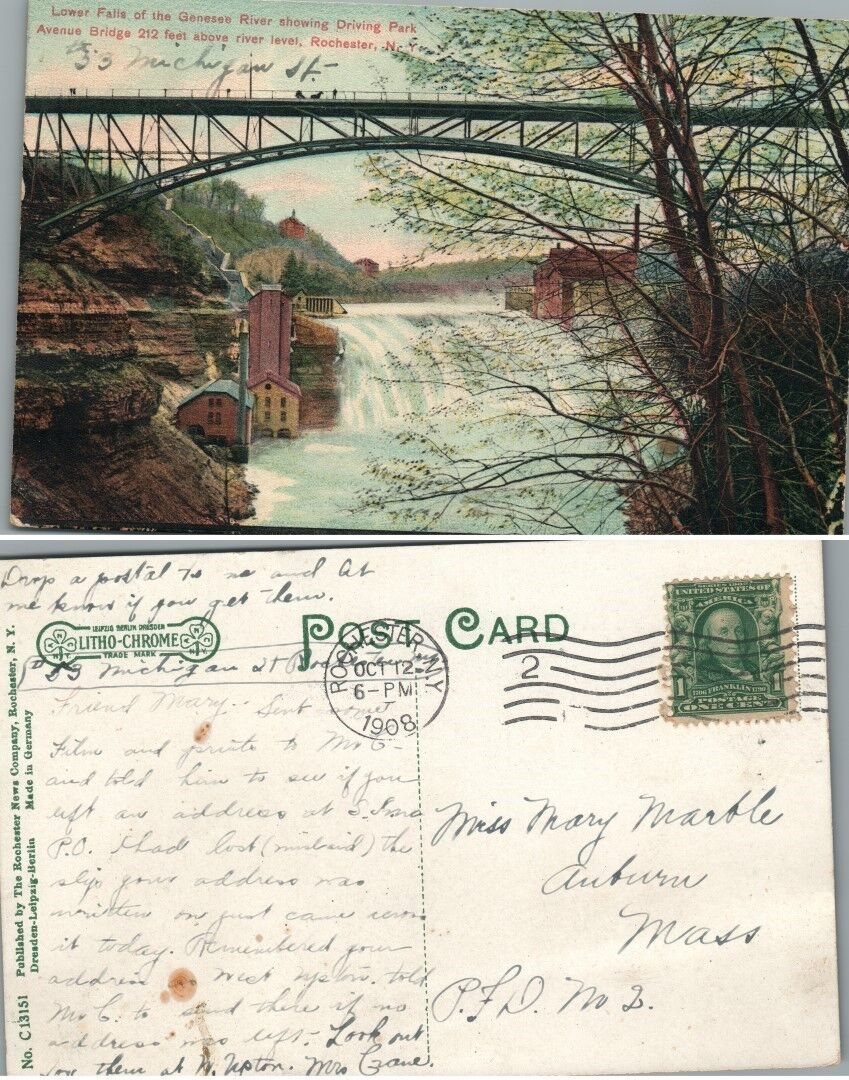 Lower Falls of the Genesee River showing Driving Park
Avenue Bridge 212 feet above river level, Rochester, N. Y.
53 Michigan St
Drop a postal to me and let
me know if you get them.
LEIPZIG BERLIN DRESDEN
LITHO-CHROME
TRADE MARK
POST CARD
53 Michigan St
ROCHESTER, N.Y.
OCT 12
6-PM
1908
2
UNITED STATES OF
AMERICA
1
FRANKLIN
POSTAGE
ONE CENT
Friend Mary - Sent some
films and prints to Mr C-
and told him to see if you
left an address at S.
P.O. I had lost (mislaid) the
slip your address was
written on just came across
it today. Remembered your
address as West Upton. told
Mr C. to send there if no
address was left - Look out
for them at W. Upton. Mrs Crane.
Miss Mary Marble
Auburn
Mass
R.F.D. No 2.
No. C 13151 Published by The Rochester News Company, Rochester, N. Y.
Dresden-Leipzig-Berlin Made in Germany